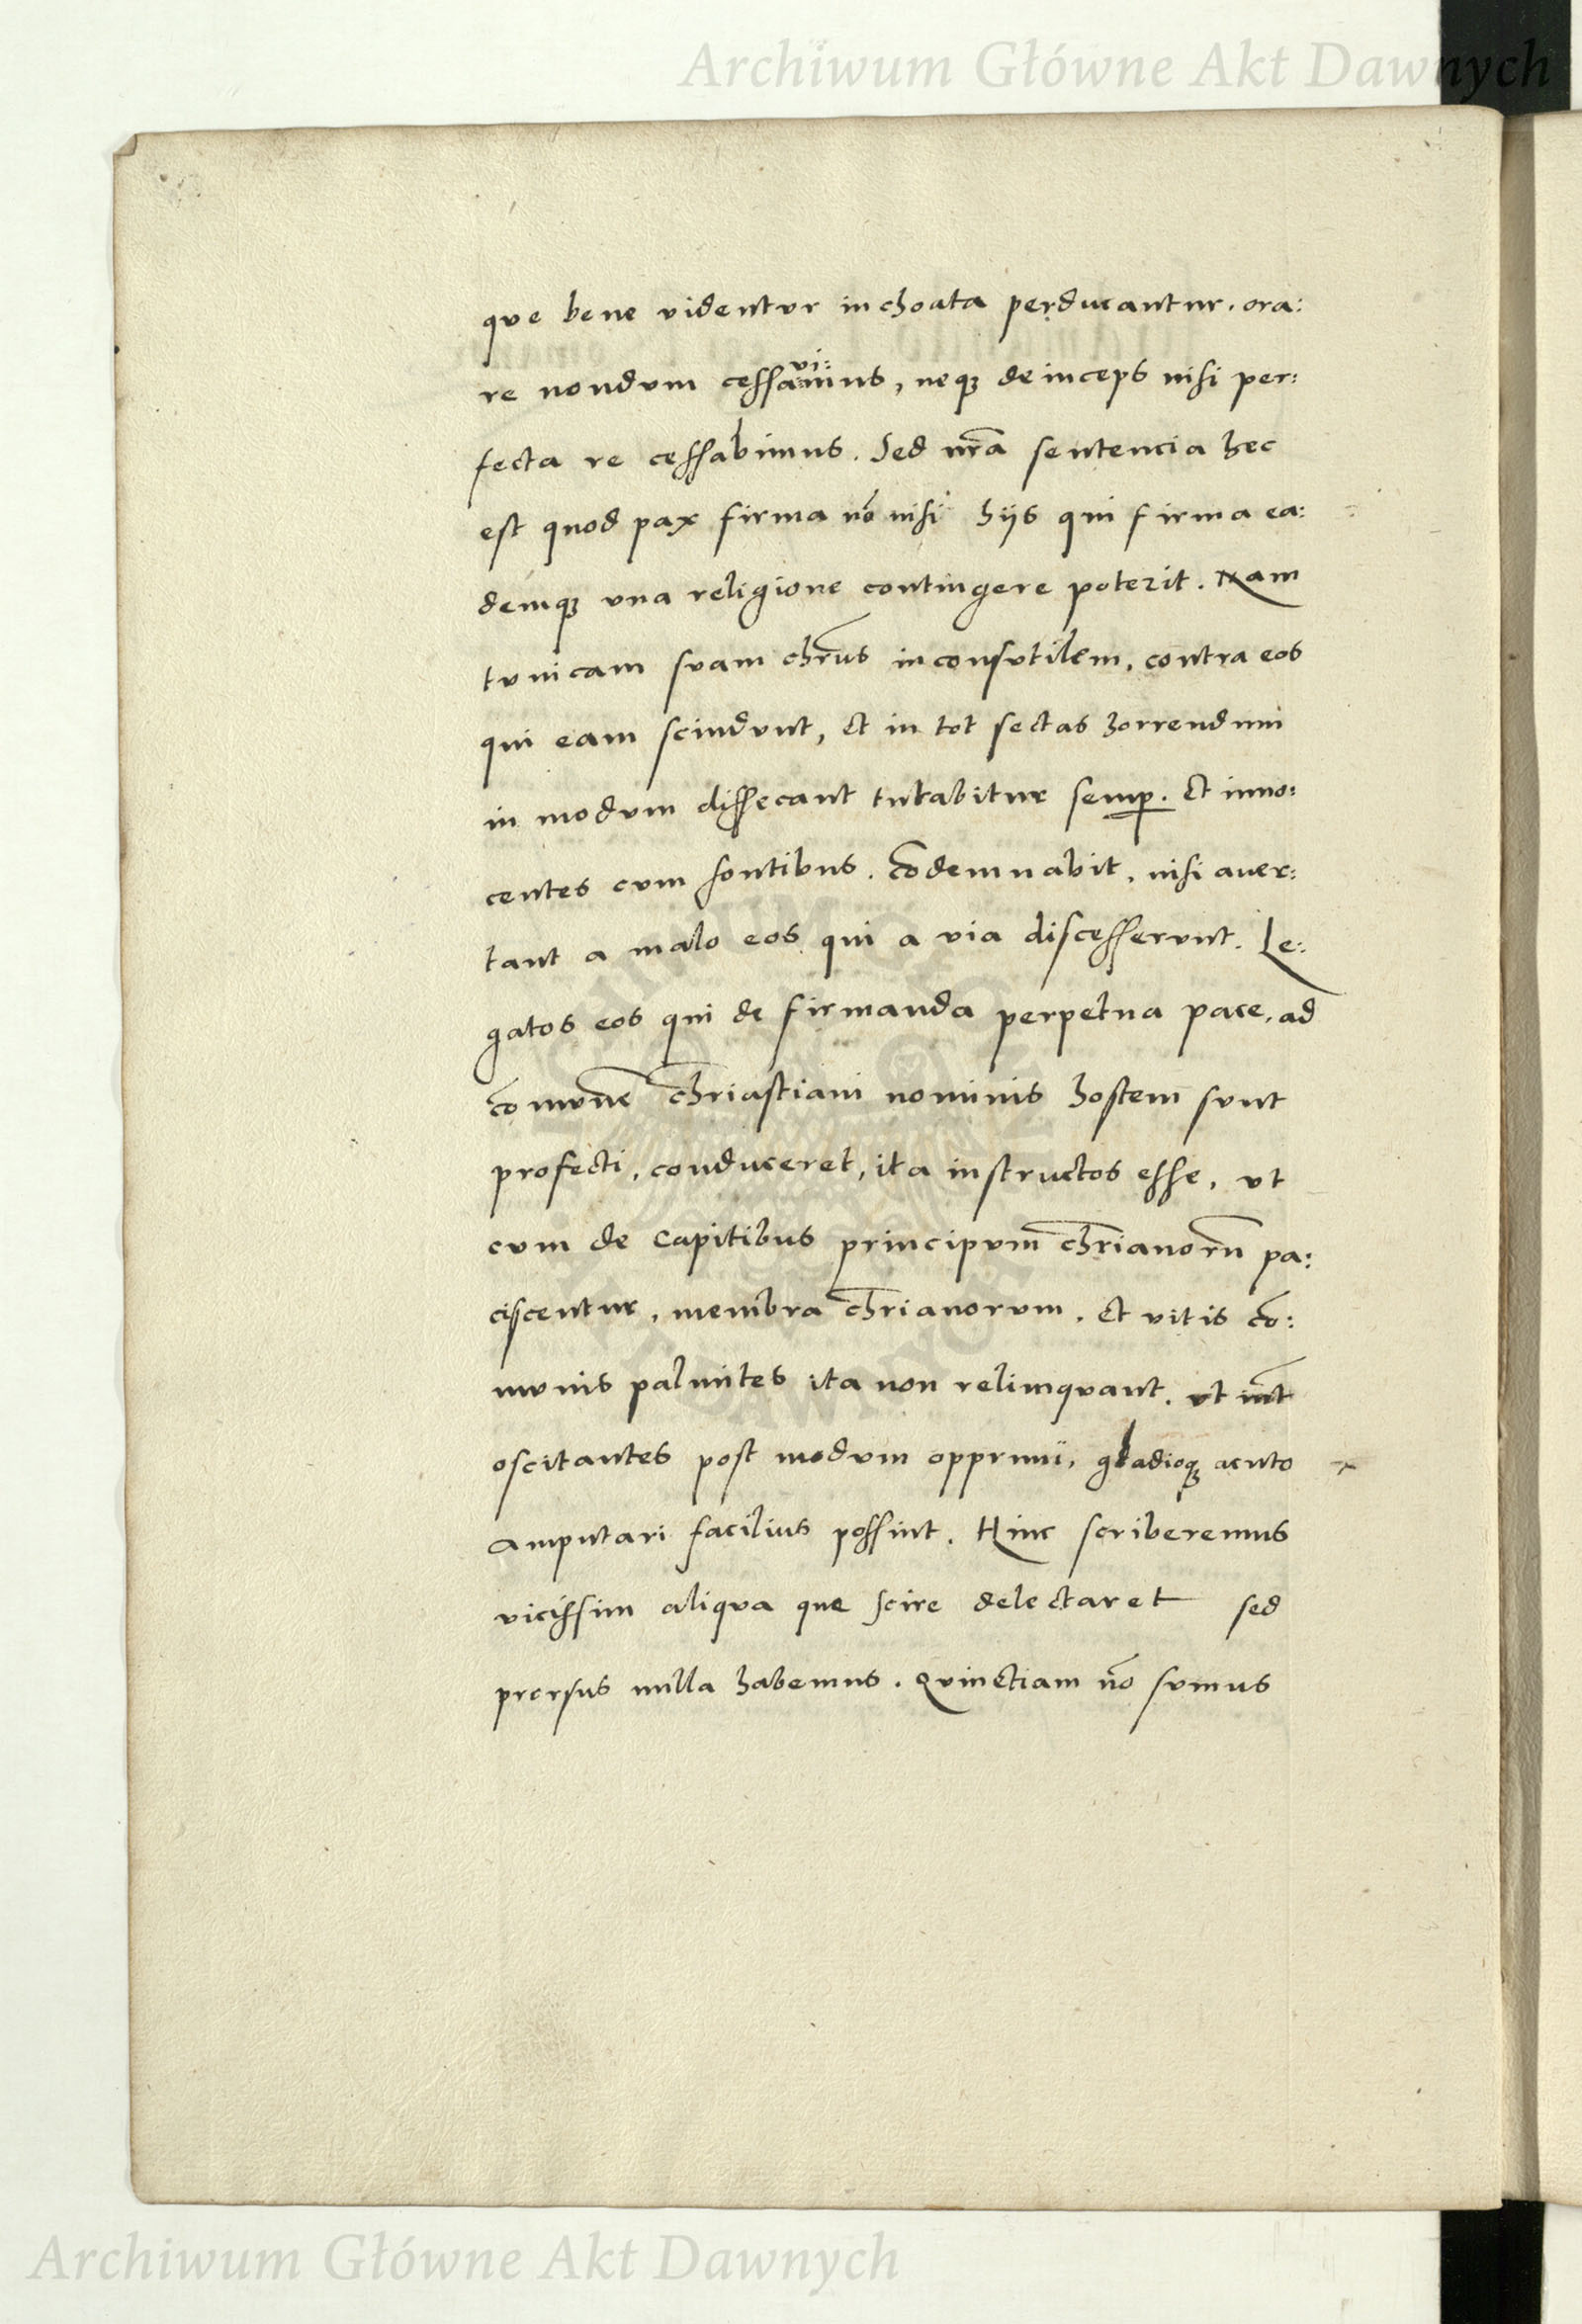 Archiwum Główne Akt Dawnych
que bene videntvr inchoata perducantur. ora:
re nondvm cessavimus, neqꝫ deinceps nisi per:
fecta re cessabimus. Sed nr̃a sentencia hec
est quod pax firma nõ nisi hijs qui firma ea:
demqꝫ vna religione contingere poterit. Nam
tvnicam svam chr̃us inconsvtilem, contra eos
qui eam scindvnt, et in tot sectas horrendum
in modvm dissecant tutabitur semꝑ. Et inno:
centes cvm sontibus. cõdemnabit, nisi auer:
tant a malo eos qui a via discesservnt. Le:
gatos eos qui de firmanda perpetua pace, ad
cõmvnẽ chriastiani nominis hostem svnt
profecti, conduceret, ita instructos esse, vt
cvm de capitibus principvm chr̃ianorũ pa:
ciscentur, membra chr̃ianorvm. Et vitis cõ:
mvnis palmites ita non relinqvant. vt
oscitantes post modvm opprimi, gladioqꝫ acuto
amputari facilius possint. Hinc scriberemus
vicissim aliqva que scire delectaret sed
prorsus nulla habemus. Qvinetiam nõ svmus
Archiwum Główne Akt Dawnych